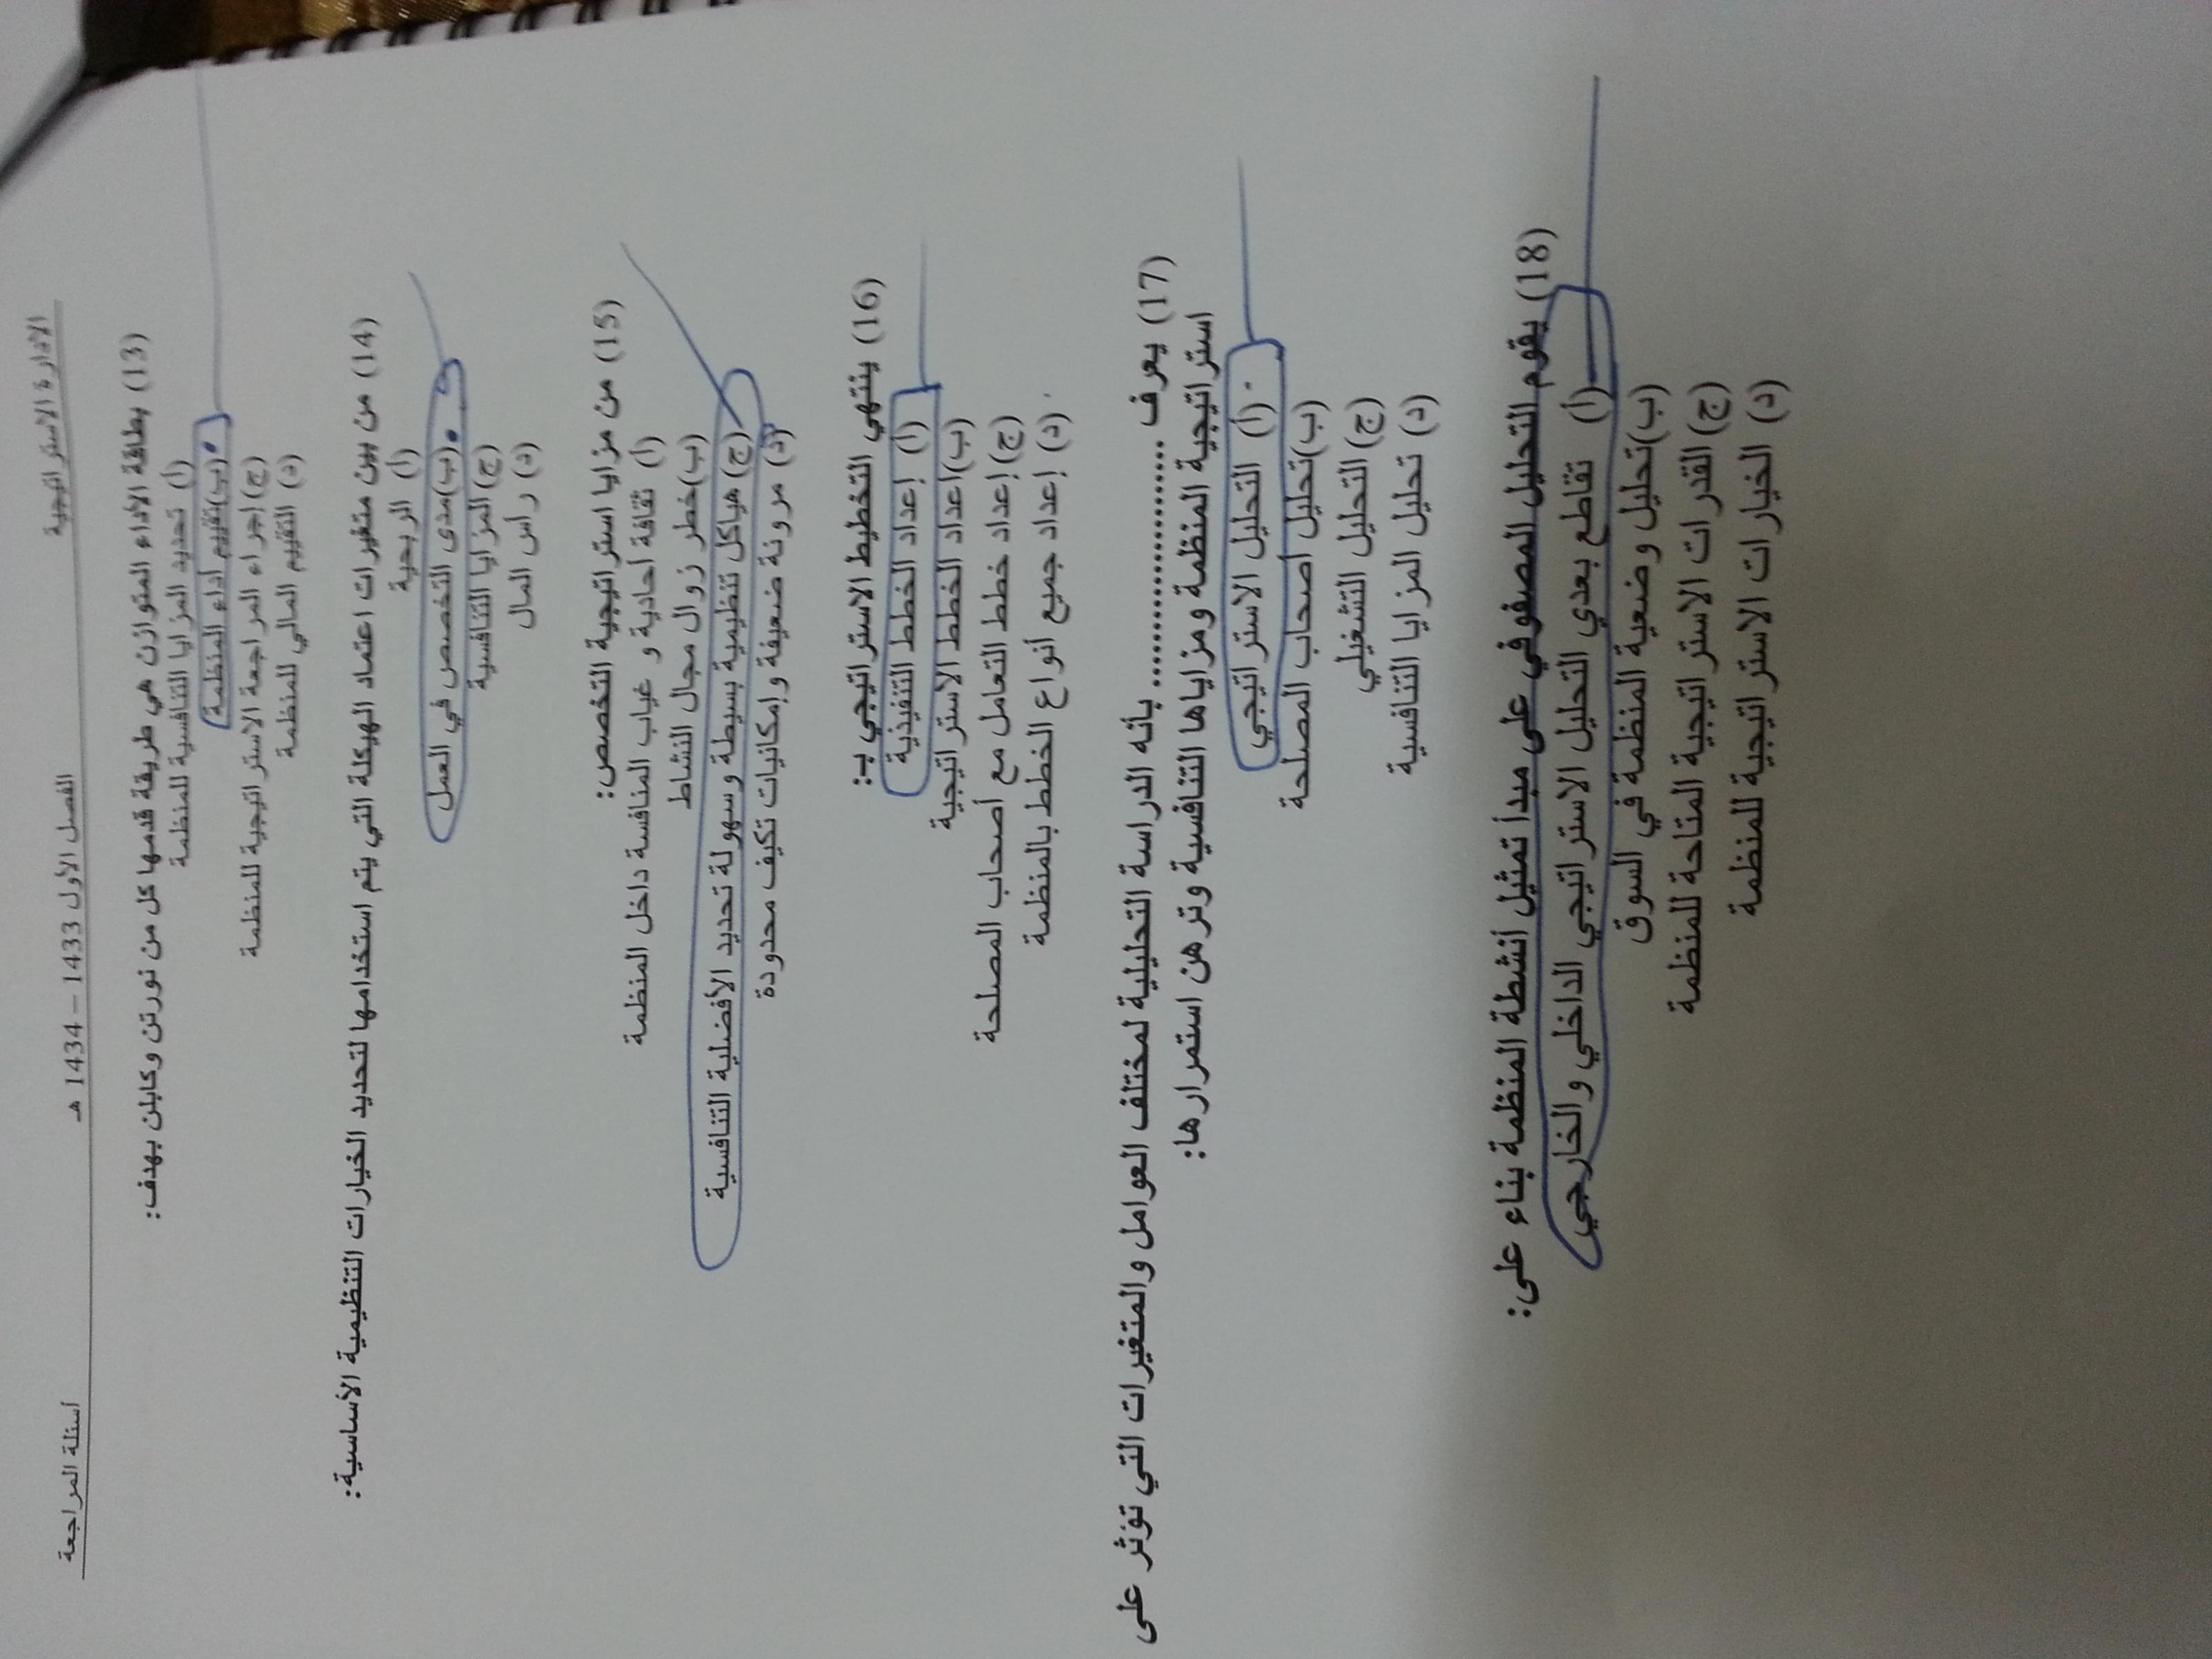 الادارة الاستراتيجية الفصل الأول 1433 – 1434 هـ أسئلة المراجعة
(13) بطاقة الاداء المتوازن هي طريقة قدمها كل من نورتن وكابلن بهدف:
(أ) تحديد المزايا التنافسية للمنظمة
(ب) تقييم اداء المنظمة
(ج) إجراء المراجعة الاستراتيجية للمنظمة
(د) التقييم المالي للمنظمة
(14) من بين متغيرات اعتماد الهيكلة التي يتم استخدامها لتحديد الخيارات التنظيمية الأساسية:
(أ) الربحية
(ب) مدى التخصص في العمل
(ج) المزايا التنافسية
(د) راس المال
(15) من مزايا استراتيجية التخصص:
(أ) ثقافة أحادية و غياب المنافسة داخل المنظمة
(ب) خطر زوال مجال النشاط
(ج) هياكل تنظيمية بسيطة وسهولة تحديد الأفضلية التنافسية
(د) مرونة ضعيفة وإمكانيات تكيف محدودة
(16) ينتهي التخطيط الاستراتيجي بـ:
(أ) إعداد الخطط التنفيذية
(ب) اعداد الخطط الاستراتيجية
(ج) إعداد خطط التعامل مع أصحاب المصلحة
(د) إعداد جميع أنواع الخطط بالمنظمة
(17) يعرف ........................ بأنه الدراسة التحليلية لمختلف العوامل والمتغيرات التي تؤثر على
استراتيجية المنظمة ومزاياها التنافسية وترهن استمرارها:
(أ) التحليل الاستراتيجي
(ب) تحليل اصحاب المصلحة
(ج) التحليل التشغيلي
(د) تحليل المزايا التنافسية
(18) يقوم التحليل المصفوفي على مبدأ تمثيل أنشطة المنظمة بناء على:
(أ) تقاطع بعدي التحليل الاستراتيجي الداخلي والخارجي
(ب) تحليل وضعية المنظمة في السوق
(ج) القدرات الاستراتيجية المتاحة للمنظمة
(د) الخيارات الاستراتيجية للمنظمة